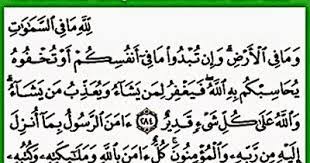 لِلَّهِ مَا فِي السَّمَاوَاتِ
وَمَا فِي الْأَرْضِ وَإِن تُبْدُوا مَا فِي أَنفُسِكُمْ أَوْ تُخْفُوهُ
يُحَاسِبْكُم بِهِ اللَّهُ فَيَغْفِرُ لِمَن يَشَاءُ وَيُعَذِّبُ مَن يَشَاءُ
وَاللَّهُ عَلَىٰ كُلِّ شَيْءٍ قَدِيرٌ ٢٨٤ ءَامَنَ الرَّسُولُ بِمَا أُنزِلَ
إِلَيْهِ مِن رَّبِّهِ وَالْمُؤْمِنُونَ كُلٌّ ءَامَنَ بِاللَّهِ وَمَلَائِكَتِهِ وَكُتُبِهِ